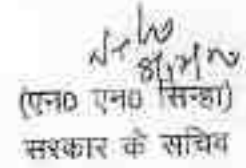 (एन0 एन0 सिन्हा)
सरकार के सचिव